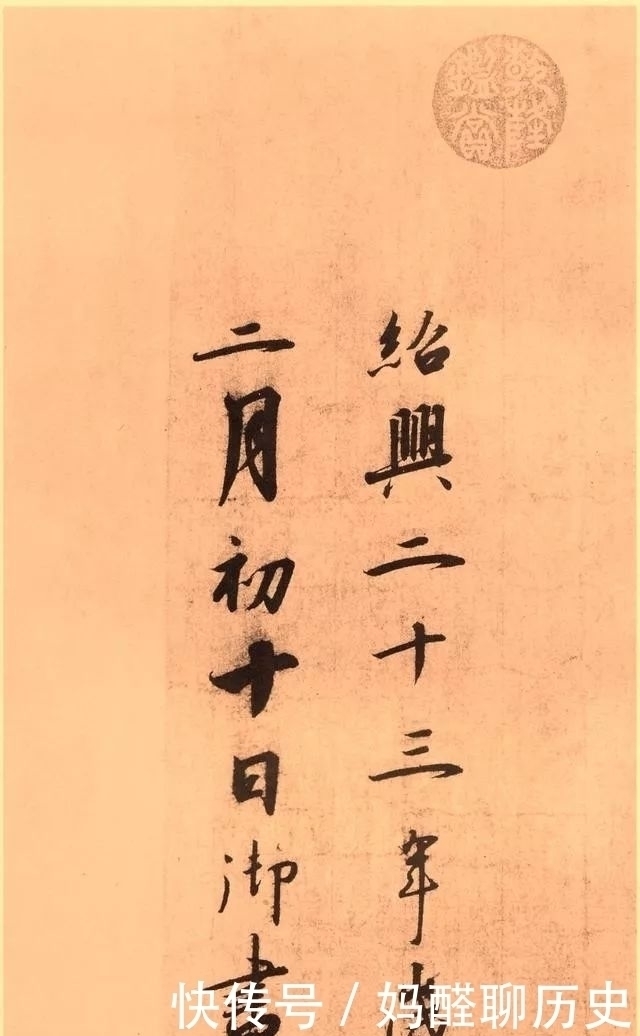 乾隆
鑑賞
紹興二十三年
二月初十日御書
快传号 / 妈醛聊历史